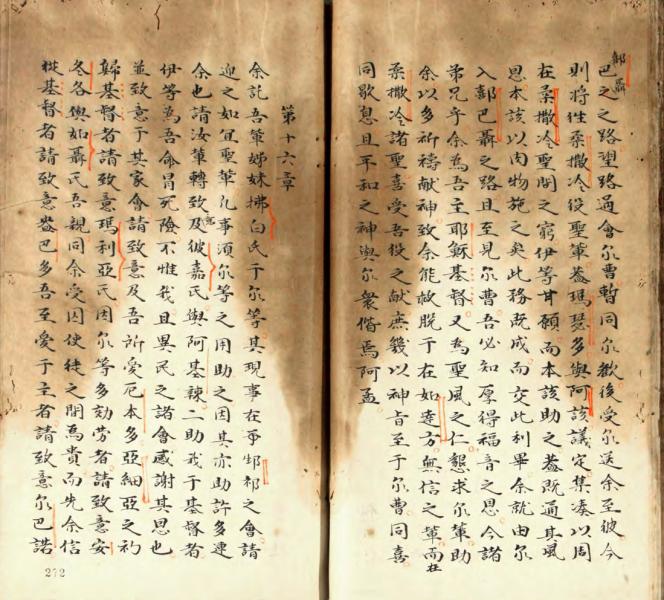 郭聶
巴之之路望路過會尔曹暫同尔歡後受尔送余至彼今
則將徃柔撒冷役聖軰蓋瑪瑟多與阿該議定集凑以周
在柔撒冷聖間之窮伊等甘願而本該助之蓋既通其風
恩本該以肉物施之矣此務既成而交此利畢余就由尔
入郭巴聶之路且至見尔曹吾必知厚得福音之恩今諸
弟兄乎余為吾主耶穌基督又為聖風之仁懇求尔軰助
余以多祈禱献神致余能救脱于在如達方無信之軰而在
柔撒冷諸聖喜受吾役之献庶幾以神旨至于尔曹同喜
同歇息且平和之神與尔衆偕焉阿孟
第十六章
余託吾軰姊妹拂白氏于尔等其現事在邨祁之會請
迎之如宜聖軰凡事湏尔等之用助之因其亦助許多連
余也請汝軰轉致及彼嘉氏與阿基辣二助我于基督者
伊等為吾命冐死險不惟我且異民之諸會感謝其恩也
並致意于其家會請致意及吾所愛厄本多亞細亞之礿
歸基督者請致意瑪利亞氏因尔等多効劳者請致意安
多各與如聶氏吾親同余受囚使徒之間為貴而先余信
從基督者請致意盎巴多吾至愛于主者請致意尔巴諾
272